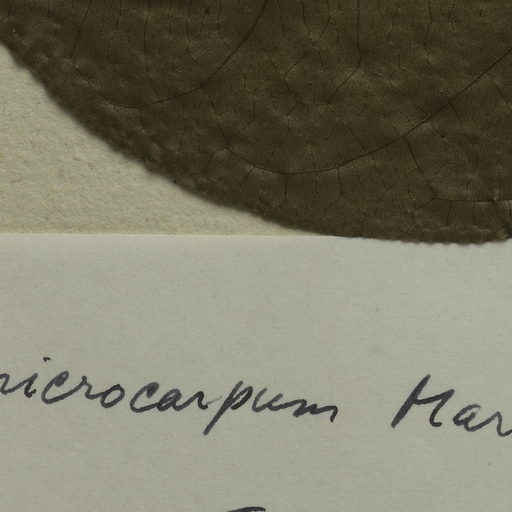 microcarpum Mar